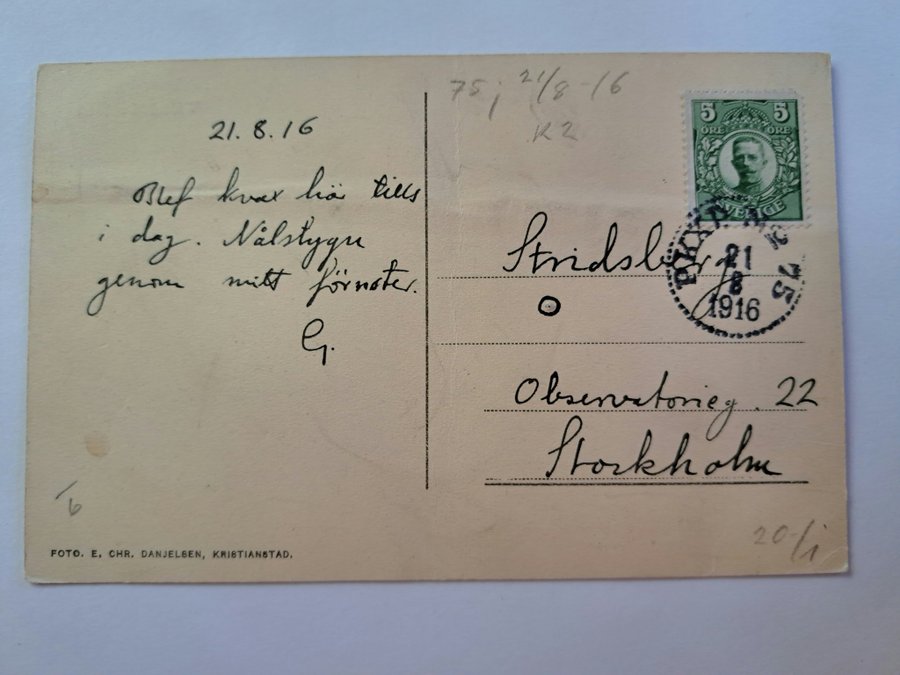 75; 21/8-16
K2
5 5
ÖRE ÖRE
SVERIGE
PKXP Nr 75
21
8
1916
21.8.16
Blef kvar här tills
i dag. Nålstygn
genom mitt fönster.
G.
Stridsberg
Observatorieg. 22
Stockholm
6
20/1
FOTO. E. CHR. DANJELSEN, KRISTIANSTAD.